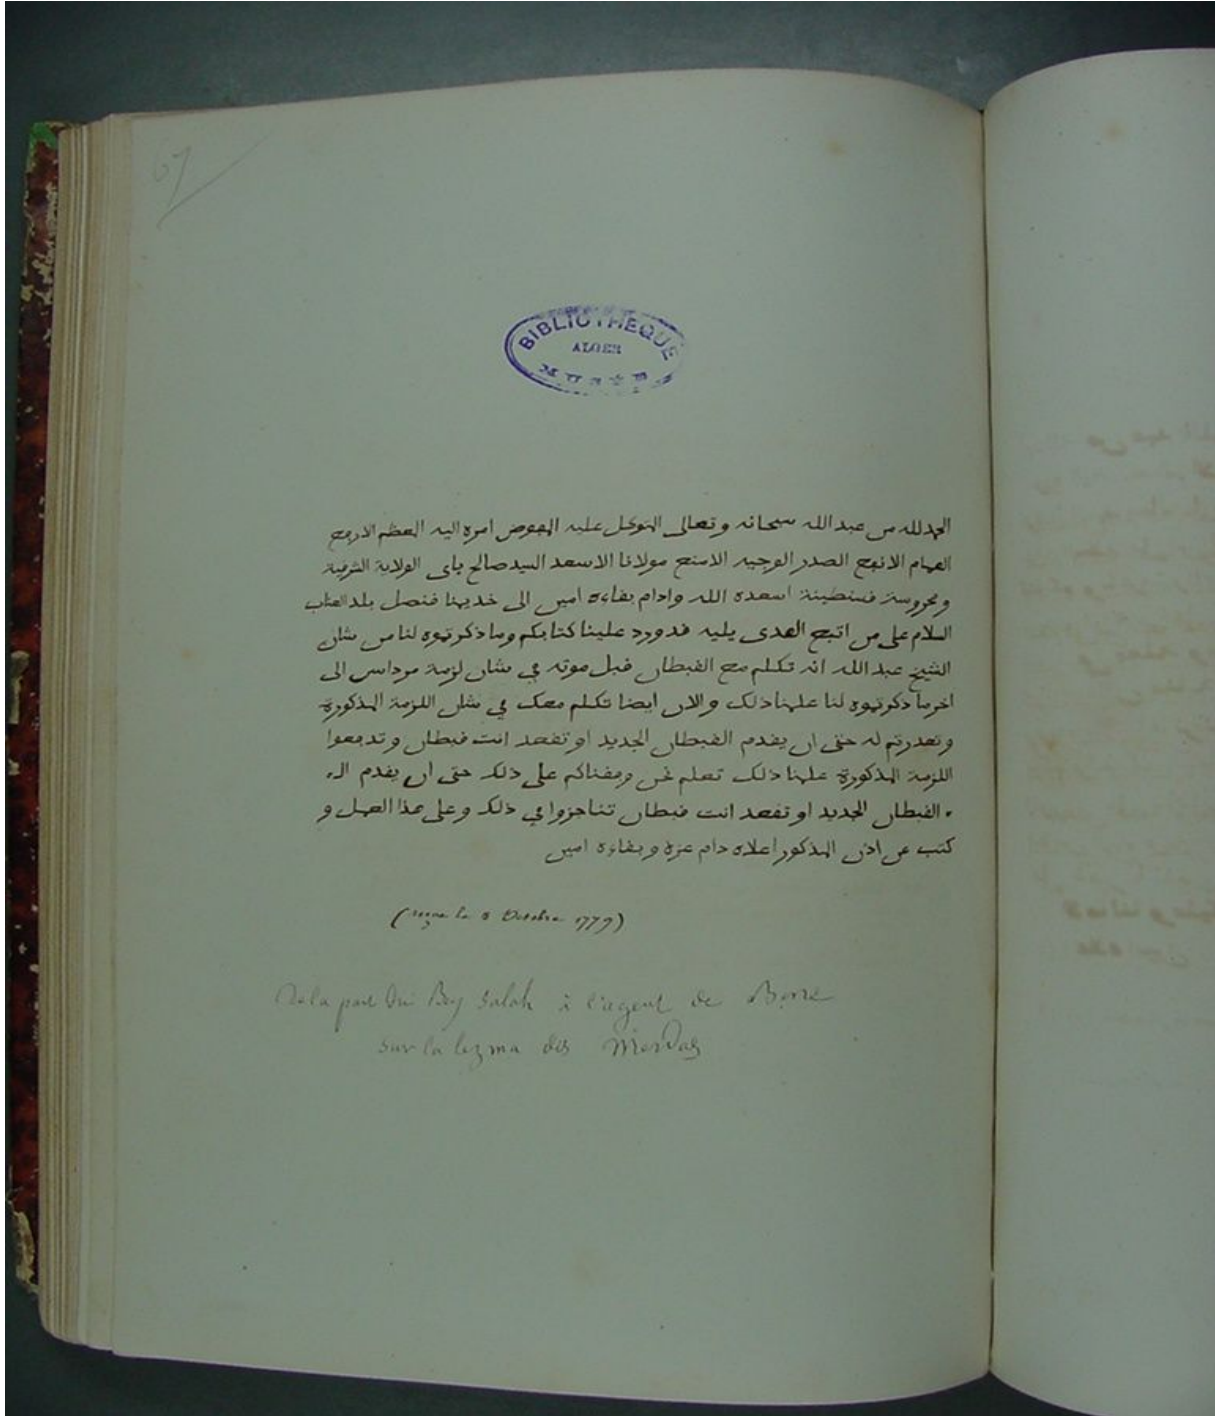 67
BIBLIOTHEQUE
ALGER
MUSÉE
الحمد لله من عبد الله سبحانه وتعالى المتوكل عليه المفوض امره اليه المعظم الارفع
الهمام الانفع الصدر الوجيه الاسمح مولانا الاسعد السيد صالح باى الولاية الشرفية
ومحروسة فسنطينة اسعده الله وادام بفاءه امين الى خديمنا فنصل بلد العناب
السلام على من اتبع الهدى يليه فد ورد علينا كتابكم وما ذكرتموه لنا من شان
الشيخ عبد الله انه تكلم مع الفبطان فبل موته في شان لزمة مرداس الى
اخر ما ذكرتموه لنا علمنا ذلك والان ايضا تكلم معك في شان اللزمة المذكورة
وتعدرتم له حتى ان يفدم الفبطان الجديد او تفعد انت فبطان وتدفعوا
اللزمة المذكورة علمنا ذلك تعلم نحن وفناكم على ذلك حتى ان يفدم
الفبطان الجديد او تفعد انت فبطان تناجزوا في ذلك وعلى هذا العمل و
كتب عن اذن المذكور اعلاه دام عزه وبفاءه امين
(reçue le 8 Octobre 1779)
De la part du Bey Salah à l'agent de Bone
sur la lezma des Merdas